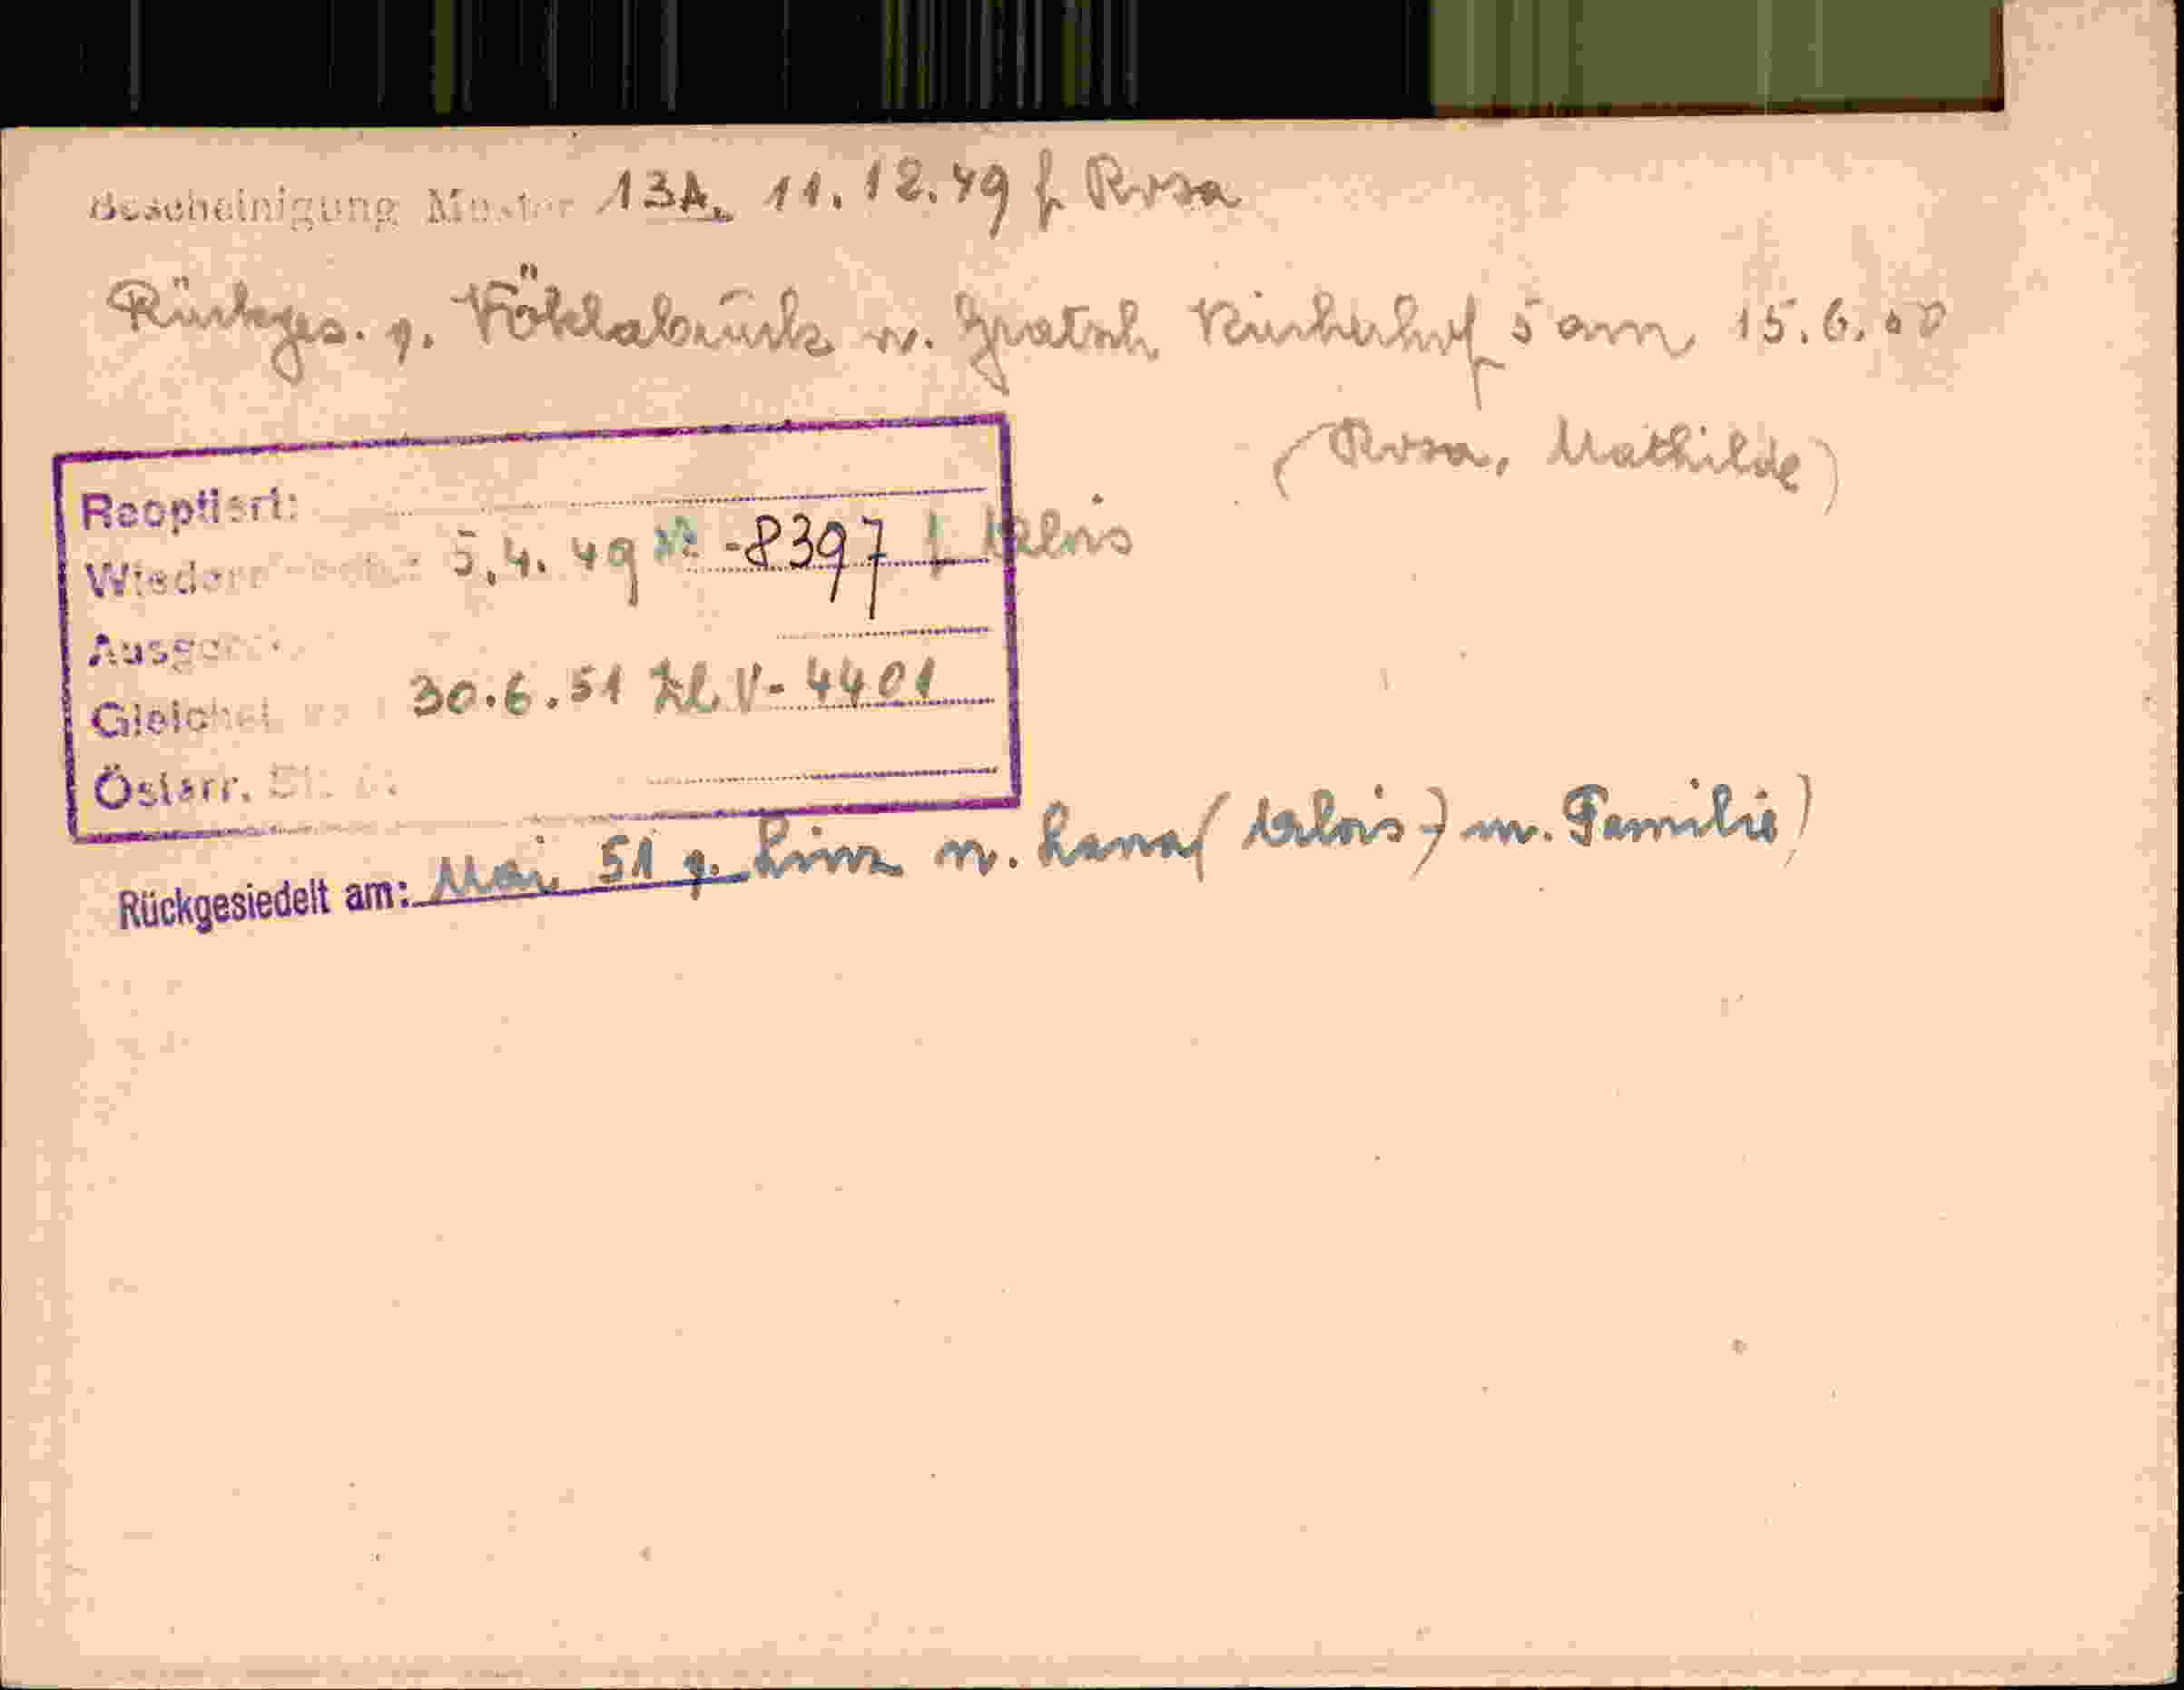 Bescheinigung Muster 13A, 11.12.49 f. Rosa
Rückges. v. Vöklabruck n. Gratsch, Kirchhof 5 am 15.6.
(Rosa, Mathilde)
Reoptiert:
5.4.49 -8397 f. Alois
30.6.51 V-4401
Österr.
Rückgesiedelt am: Mai 51 v. Linz n. Lana (Alois) m. Familie)